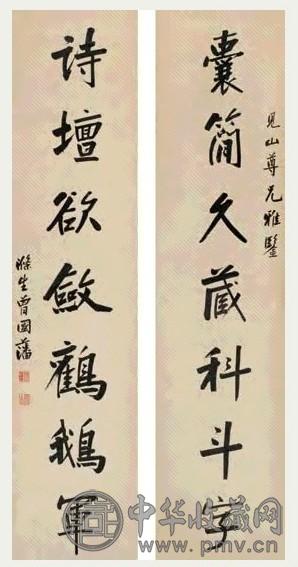 見山尊兄雅鑒
囊簡久蔵科斗字
詩壇欲斂鸛鵝軍
滌生曾國藩
中华收藏网
www.pmv.cn